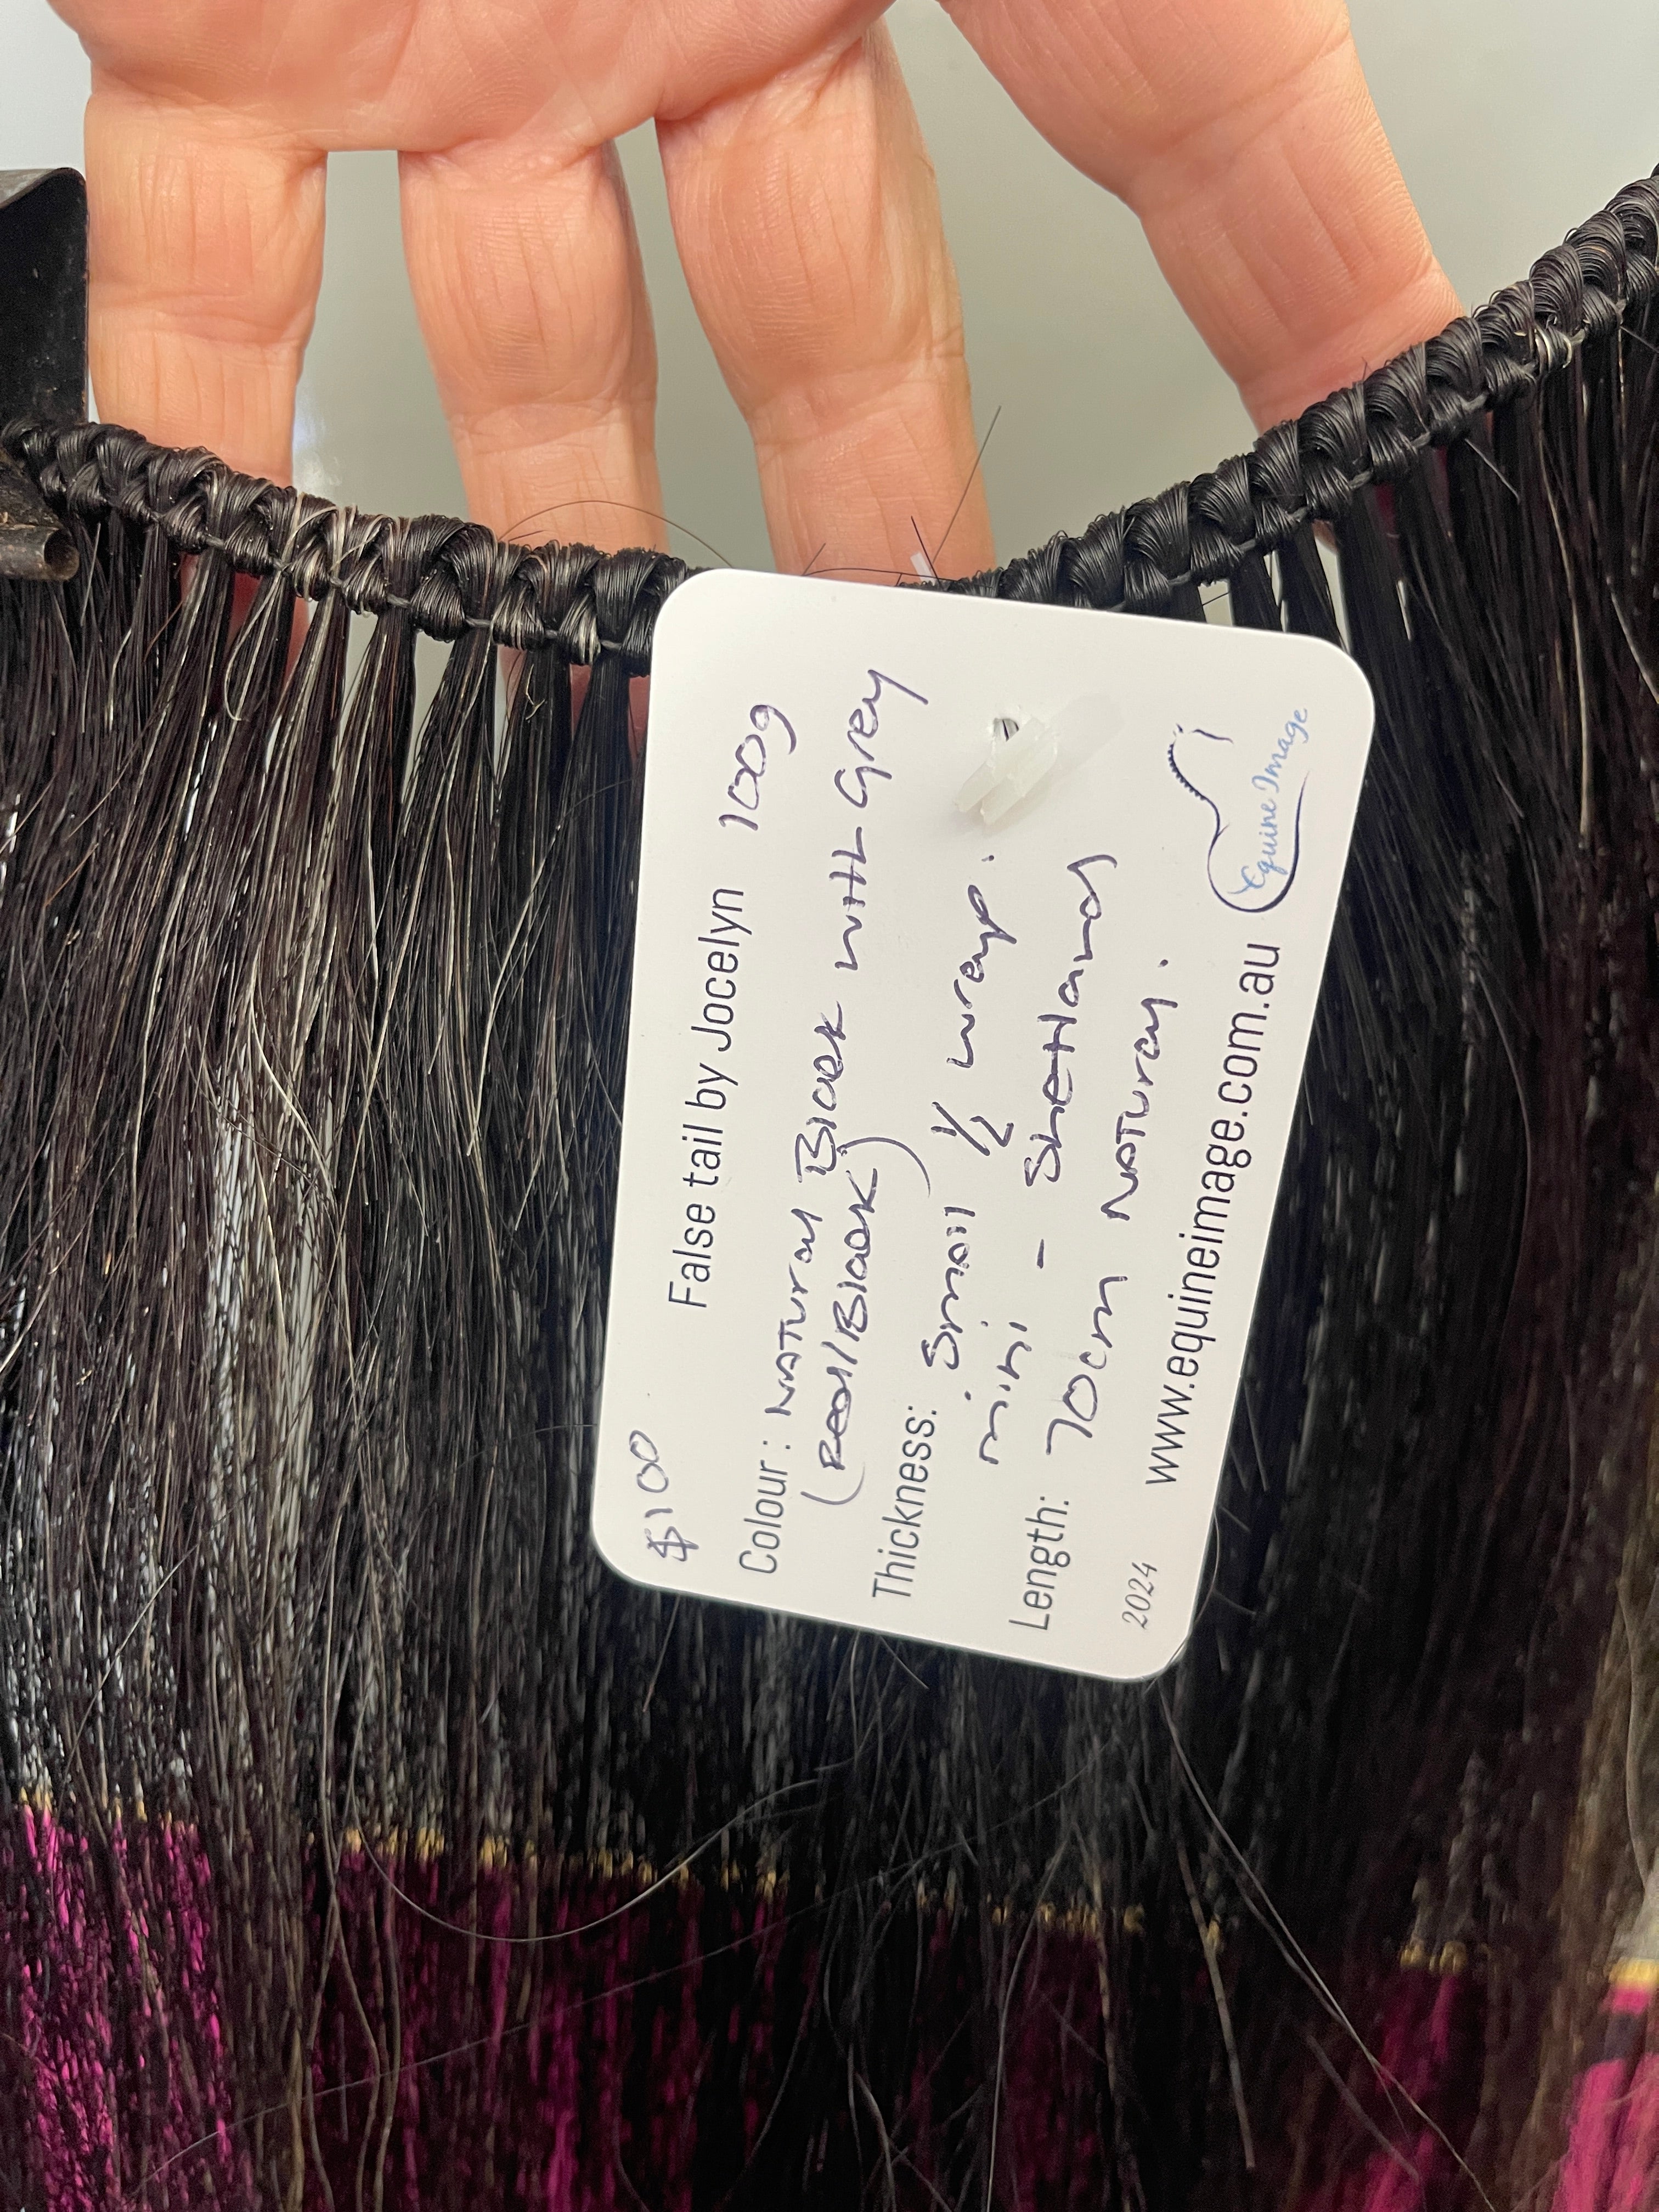 $100
False tail by Jocelyn 100g
Colour: Natural Black with Grey
(Real/Black)
Thickness: Small ½ wrap.
mini - Shetland
Length: 70cm Natural.
2024 www.equineimage.com.au
Equine Image